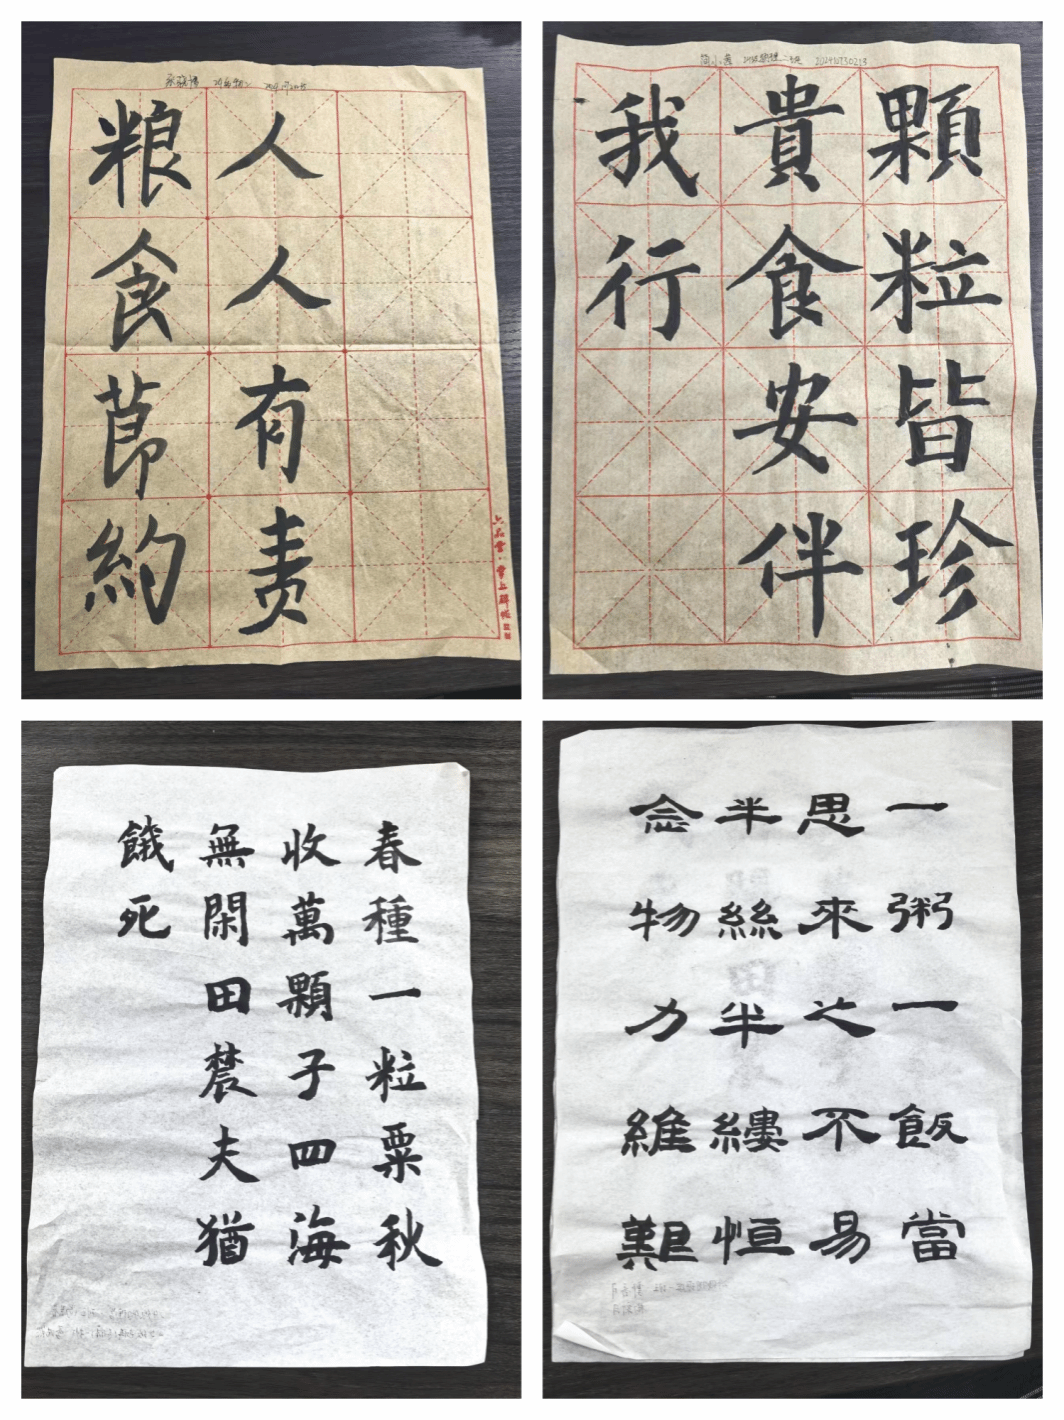 粮食莭約
人人有责
202410730213
顆粒皆珍
貴食安伴
我行
春種一粒粟秋
收萬顆子四海
無閑田農夫猶
餓死
一粥一飯當
思來之不易
半絲半縷恒
念物力維艱